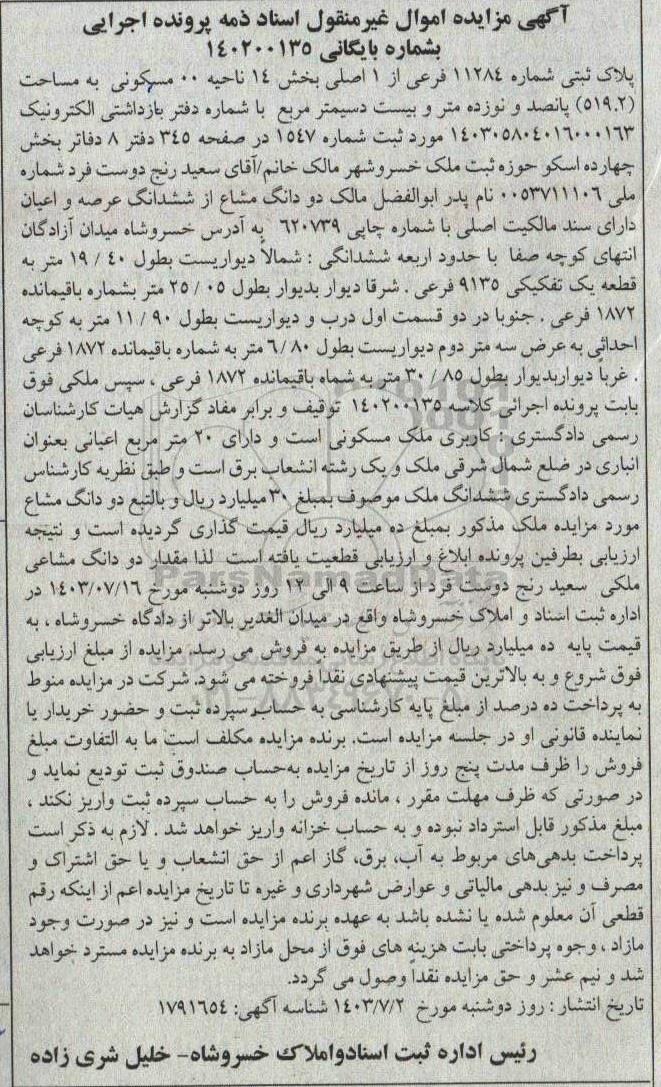 آگهی مزایده اموال غیرمنقول اسناد ذمه پرونده اجرایی
بشماره بایگانی ۱۴۰۲۰۰۱۳۵
پلاک ثبتی شماره ۱۱۲۸۴ فرعی از ۱ اصلی بخش ۱۴ ناحیه ۰۰ مسکونی به مساحت
(۵۱۹.۲) پانصد و نوزده متر و بیست دسیمتر مربع با شماره دفتر بازداشتی الکترونیک
۱۴۰۳۰۵۸۰۴۰۱۶۰۰۰۱۶۳ مورد ثبت شماره ۱۵۴۷ در صفحه ۳۴۵ دفتر ۸ دفاتر بخش
چهارده اسکو حوزه ثبت ملک خسروشهر مالک خانم/آقای سعید رنج دوست فرد شماره
ملی ۰۰۵۳۷۱۱۱۰۶ نام پدر ابوالفضل مالک دو دانگ مشاع از ششدانگ عرصه و اعیان
دارای سند مالکیت اصلی با شماره چاپی ۶۲۰۷۳۹ به آدرس خسروشاه میدان آزادگان
انتهای کوچه صفا با حدود اربعه ششدانگی : شمالاً دیواریست بطول ۴۰ / ۱۹ متر به
قطعه یک تفکیکی ۹۱۳۵ فرعی . شرقا دیوار بدیوار بطول ۰۵ / ۲۵ متر بشماره باقیمانده
۱۸۷۲ فرعی . جنوبا در دو قسمت اول درب و دیواریست بطول ۹۰ / ۱۱ متر به کوچه
احداثی به عرض سه متر دوم دیواریست بطول ۸۰ / ۶ متر به شماره باقیمانده ۱۸۷۲ فرعی
. غرباً دیواربدیوار بطول ۸۵ / ۳۰ متر به شماه باقیمانده ۱۸۷۲ فرعی ، سپس ملکی فوق
بابت پرونده اجرائی کلاسه ۱۴۰۲۰۰۱۳۵ توقیف و برابر مفاد گزارش هیات کارشناسان
رسمی دادگستری : کاربری ملک مسکونی است و دارای ۲۰ متر مربع اعیانی بعنوان
انباری در ضلع شمال شرقی ملک و یک رشته انشعاب برق است و طبق نظریه کارشناس
رسمی دادگستری ششدانگ ملک موصوف بمبلغ ۳۰ میلیارد ریال و بالتبع دو دانگ مشاع
مورد مزایده ملک مذکور بمبلغ ده میلیارد ریال قیمت گذاری گردیده است و نتیجه
ارزیابی بطرفین پرونده ابلاغ و ارزیابی قطعیت یافته است لذا مقدار دو دانگ مشاعی
ملکی سعید رنج دوست فرد از ساعت ۹ الی ۱۲ روز دوشنبه مورخ ۱۴۰۳/۰۷/۱۶ در
اداره ثبت اسناد و املاک خسروشاه واقع در میدان الغدیر بالاتر از دادگاه خسروشاه ، به
قیمت پایه ده میلیارد ریال از طریق مزایده به فروش می رسد. مزایده از مبلغ ارزیابی
فوق شروع و به بالاترین قیمت پیشنهادی نقداً فروخته می شود. شرکت در مزایده منوط
به پرداخت ده درصد از مبلغ پایه کارشناسی به حساب سپرده ثبت و حضور خریدار یا
نماینده قانونی او در جلسه مزایده است. برنده مزایده مکلف است ما به التفاوت مبلغ
فروش را ظرف مدت پنج روز از تاریخ مزایده به‌حساب صندوق ثبت تودیع نماید و
در صورتی که ظرف مهلت مقرر ، مانده فروش را به حساب سپرده ثبت واریز نکند ،
مبلغ مذکور قابل استرداد نبوده و به حساب خزانه واریز خواهد شد . لازم به ذکر است
پرداخت بدهی‌های مربوط به آب، برق، گاز اعم از حق انشعاب و یا حق اشتراک و
مصرف و نیز بدهی مالیاتی و عوارض شهرداری و غیره تا تاریخ مزایده اعم از اینکه رقم
قطعی آن معلوم شده یا نشده باشد به عهده برنده مزایده است و نیز در صورت وجود
مازاد ، وجوه پرداختی بابت هزینه های فوق از محل مازاد به برنده مزایده مسترد خواهد
شد و نیم عشر و حق مزایده نقداً وصول می گردد.
تاریخ انتشار : روز دوشنبه مورخ ۱۴۰۳/۷/۲ شناسه آگهی: ۱۷۹۱۶۵۴
رئیس اداره ثبت اسنادواملاک خسروشاه- خلیل شری زاده
ParsNamadData